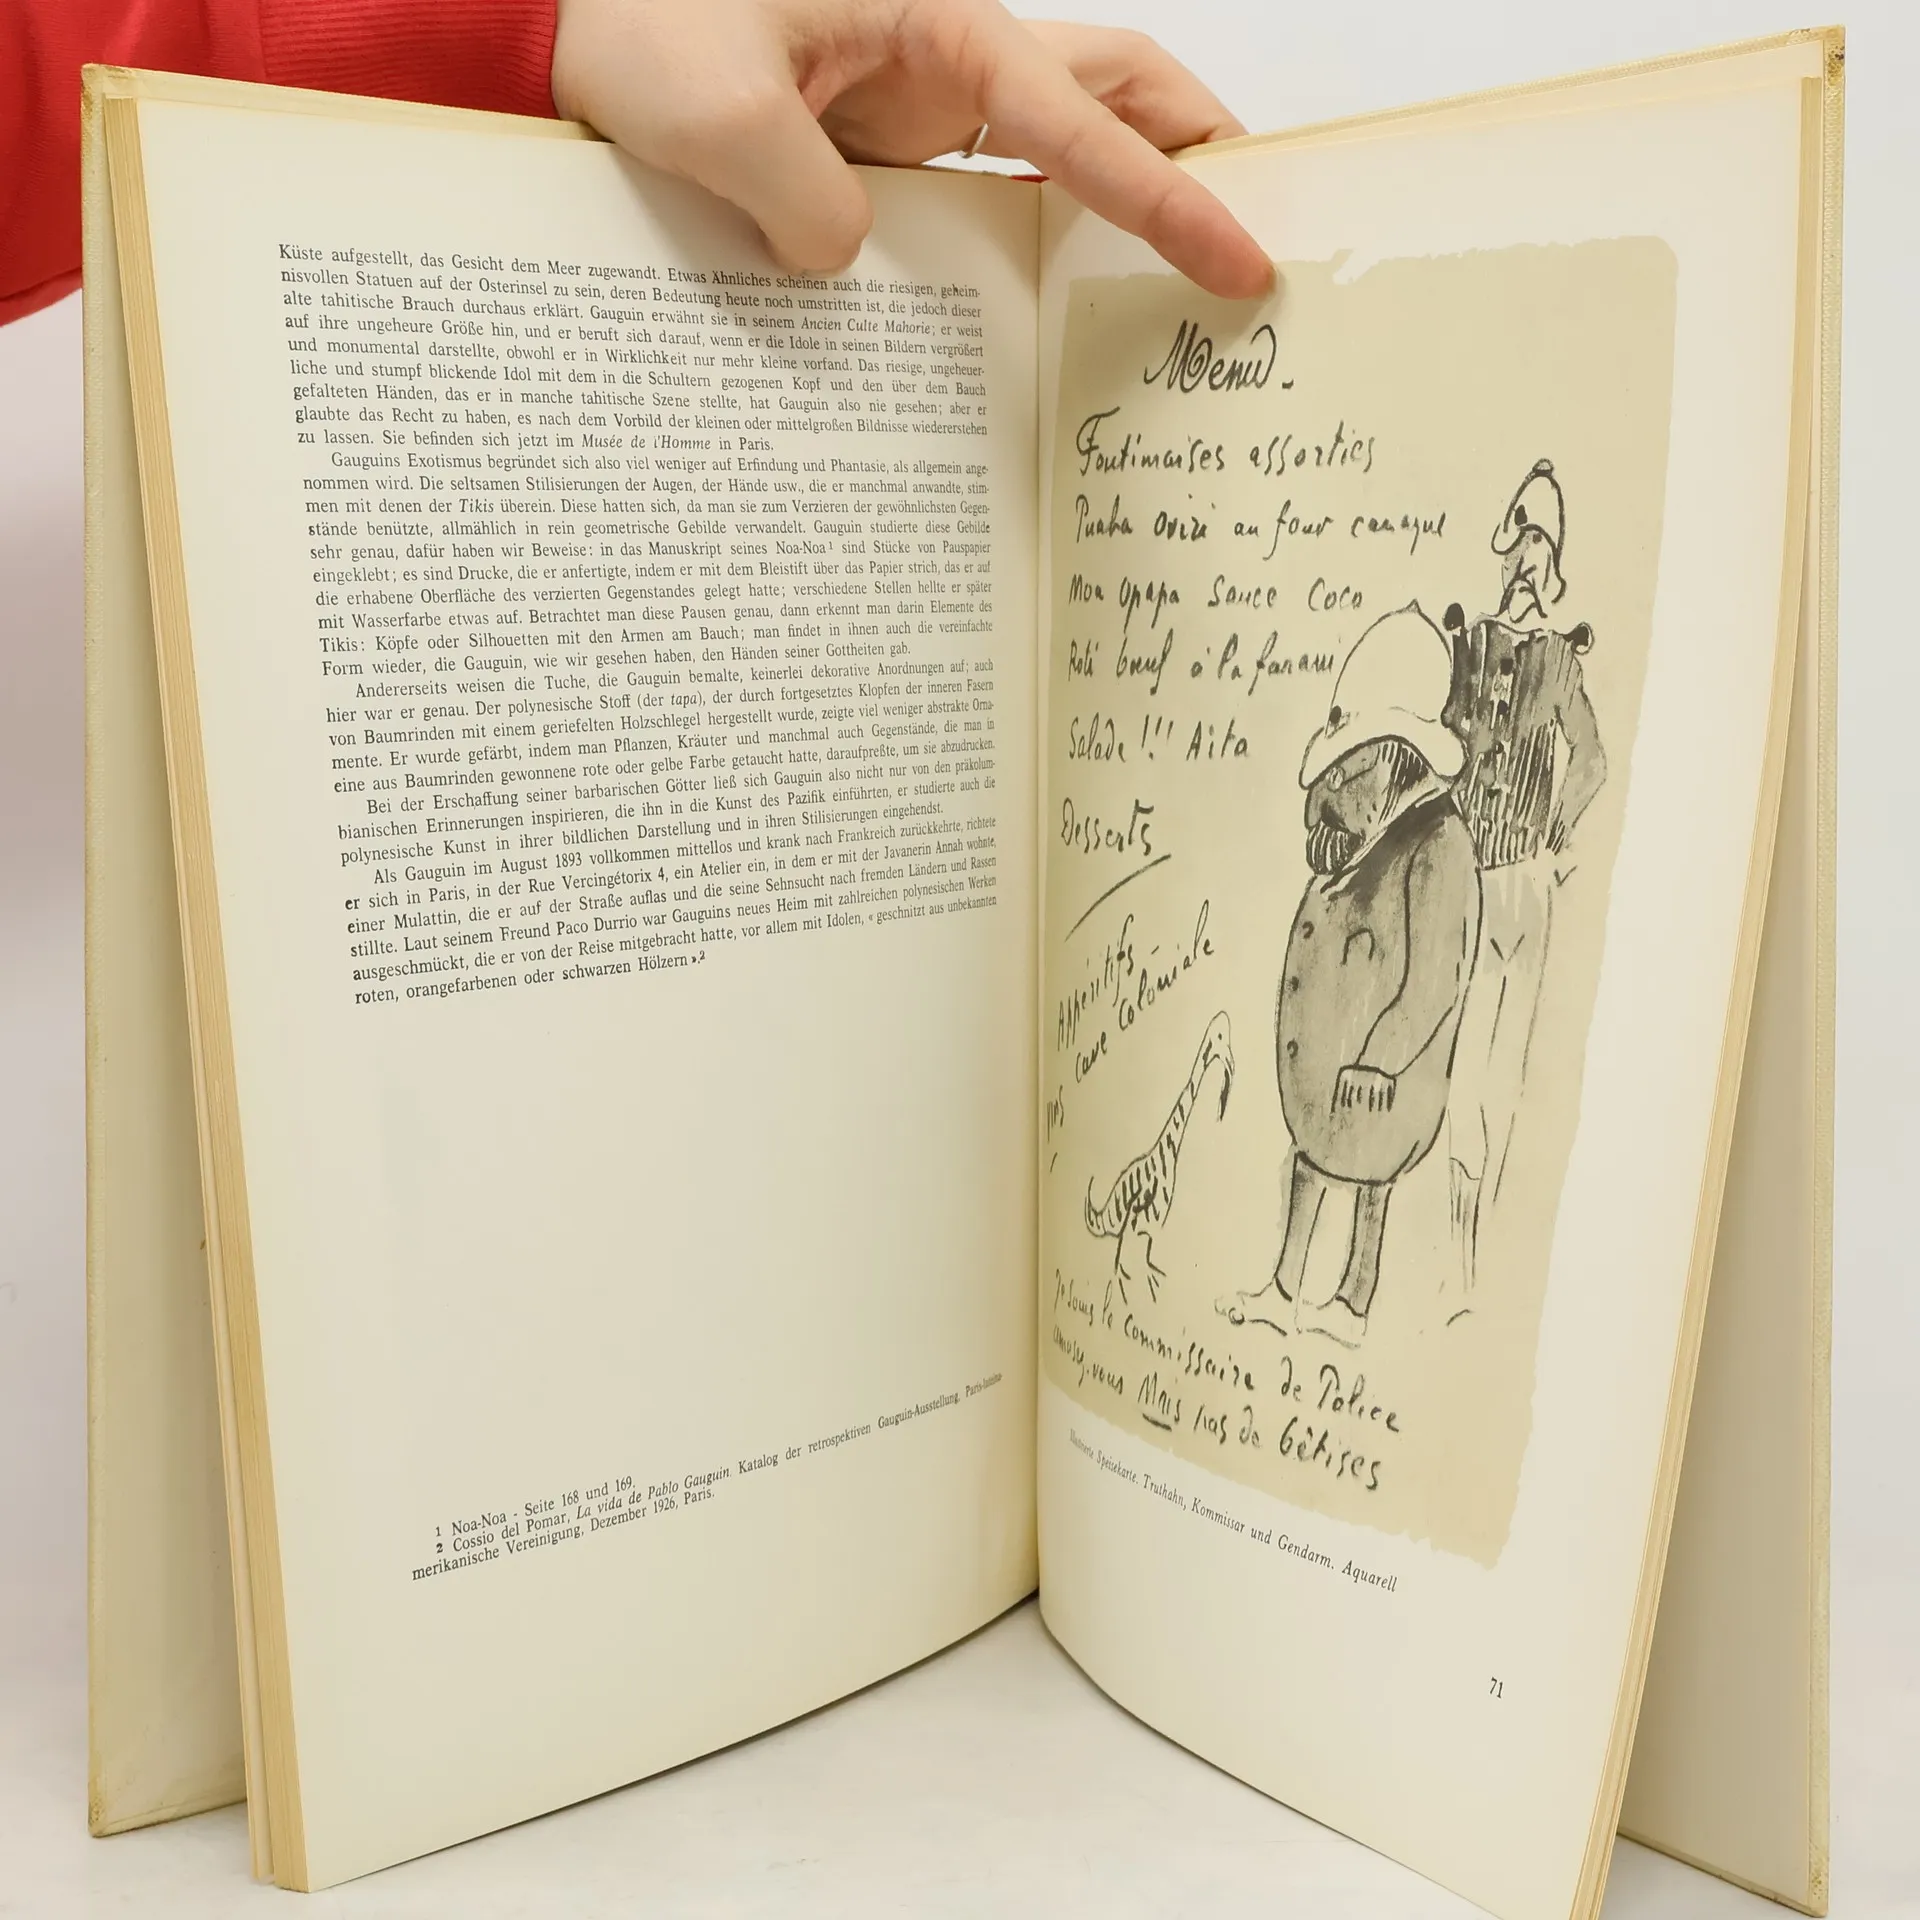 Küste aufgestellt, das Gesicht dem Meer zugewandt. Etwas Ähnliches scheinen auch die riesigen, geheim-
nisvollen Statuen auf der Osterinsel zu sein, deren Bedeutung heute noch umstritten ist, die jedoch dieser
alte tahitische Brauch durchaus erklärt. Gauguin erwähnt sie in seinem Ancien Culte Mahorie; er weist
auf ihre ungeheure Größe hin, und er beruft sich darauf, wenn er die Idole in seinen Bildern vergrößert
und monumental darstellte, obwohl er in Wirklichkeit nur mehr kleine vorfand. Das riesige, ungeheuer-
liche und stumpf blickende Idol mit dem in die Schultern gezogenen Kopf und den über dem Bauch
gefalteten Händen, das er in manche tahitische Szene stellte, hat Gauguin also nie gesehen; aber er
glaubte das Recht zu haben, es nach dem Vorbild der kleinen oder mittelgroßen Bildnisse wiedererstehen
zu lassen. Sie befinden sich jetzt im Musée de l'Homme in Paris.
Gauguins Exotismus begründet sich also viel weniger auf Erfindung und Phantasie, als allgemein ange-
nommen wird. Die seltsamen Stilisierungen der Augen, der Hände usw., die er manchmal anwandte, stim-
men mit denen der Tikis überein. Diese hatten sich, da man sie zum Verzieren der gewöhnlichsten Gegen-
stände benützte, allmählich in rein geometrische Gebilde verwandelt. Gauguin studierte diese Gebilde
sehr genau, dafür haben wir Beweise: in das Manuskript seines Noa-Noa¹ sind Stücke von Pauspapier
eingeklebt; es sind Drucke, die er anfertigte, indem er mit dem Bleistift über das Papier strich, das er auf
die erhabene Oberfläche des verzierten Gegenstandes gelegt hatte; verschiedene Stellen hellte er später
mit Wasserfarbe etwas auf. Betrachtet man diese Pausen genau, dann erkennt man darin Elemente des
Tikis: Köpfe oder Silhouetten mit den Armen am Bauch; man findet in ihnen auch die vereinfachte
Form wieder, die Gauguin, wie wir gesehen haben, den Händen seiner Gottheiten gab.
Andererseits weisen die Tuche, die Gauguin bemalte, keinerlei dekorative Anordnungen auf; auch
hier war er genau. Der polynesische Stoff (der tapa), der durch fortgesetztes Klopfen der inneren Fasern
von Baumrinden mit einem geriefelten Holzschlegel hergestellt wurde, zeigte viel weniger abstrakte Orna-
mente. Er wurde gefärbt, indem man Pflanzen, Kräuter und manchmal auch Gegenstände, die man in
eine aus Baumrinden gewonnene rote oder gelbe Farbe getaucht hatte, daraufpreßte, um sie abzudrucken.
Bei der Erschaffung seiner barbarischen Götter ließ sich Gauguin also nicht nur von den präkolum-
bianischen Erinnerungen inspirieren, die ihn in die Kunst des Pazifik einführten, er studierte auch die
polynesische Kunst in ihrer bildlichen Darstellung und in ihren Stilisierungen eingehendst.
Als Gauguin im August 1893 vollkommen mittellos und krank nach Frankreich zurückkehrte, richtete
er sich in Paris, in der Rue Vercingétorix 4, ein Atelier ein, in dem er mit der Javanerin Annah wohnte,
einer Mulattin, die er auf der Straße auflas und die seine Sehnsucht nach fremden Ländern und Rassen
stillte. Laut seinem Freund Paco Durrio war Gauguins neues Heim mit zahlreichen polynesischen Werken
ausgeschmückt, die er von der Reise mitgebracht hatte, vor allem mit Idolen, « geschnitzt aus unbekannten
roten, orangefarbenen oder schwarzen Hölzern ».²
1 Noa-Noa - Seite 168 und 169.
2 Cossio del Pomar, La vida de Pablo Gauguin. Katalog der retrospektiven Gauguin-Ausstellung, Paris-
merikanische Vereinigung, Dezember 1926, Paris.
Menu.
Foutimaises assorties
Puaha oviri au four canaque
Moa opapa Sauce Coco
Roti bœuf à la farani
Salade !!! Aita
Desserts
Apperitifs -
Cave Coloniale
vins
Je suis le Commissaire de Police
amusez-vous Mais pas de bêtises
Illustrierte Speisekarte. Truthahn, Kommissar und Gendarm. Aquarell
71